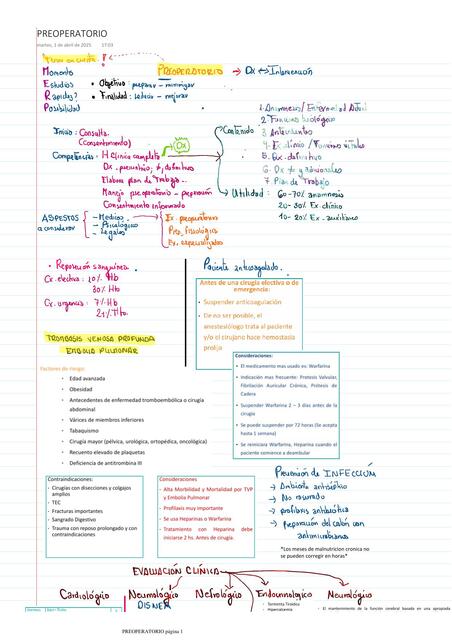 PREOPERATORIO
martes, 1 de abril de 2025 17:03
Tener en cuenta
Momento
Estudios
Rapidez?
Posibilidad
PREOPERATORIO → Dx ↔ Intervención
• Objetivo: preparar - minimizar
• Finalidad: reducir - mejorar
Inicio: Consulta.
(Consentimiento)
Dx
Competencias: H Clínica completa
Dx presuntivo, ≠, definitivo
Elaborar plan de Trabajo
Manejo preoperatorio - preparación
Consentimiento informado
Contenido
1. Anamnesis / Enfermedad Actual
2 Funciones biológicas
3 Antecedentes
4. Ex. clínico / Funciones vitales
5. Ex. definitivo
6. Dx ≠ y adicionales
7. Plan de Trabajo
→ Utilidad: 60-70% anamnesis
20-30% Ex. clínico
10-20% Ex. auxiliares
ASPECTOS
a considerar
- Médicos
- Psicológico
- Legales
Ex. preoperatorios
Pre. fisiológica
Ex. especializados
• Reposición sanguínea
Cx. electiva: 10% Hb
30% Hb
Cx. urgencia: 7% Hb
21% Hto.
Paciente anticoagulado.
Antes de una cirugía electiva o de
emergencia:
• Suspender anticoagulación
• De no ser posible, el
anestesiólogo trata al paciente
y/o el cirujano hace hemostasia
prolija
TROMBOSIS VENOSA PROFUNDA
EMBOLIA PULMONAR
Consideraciones:
• El medicamento mas usado es: Warfarina
• Indicación mas frecuente: Protesis Valvular,
Fibrilación Auricular Crónica, Prótesis de
Cadera
• Suspender Warfarina 2 – 3 días antes de la
cirugía
• Se puede suspender por 72 horas (Se acepta
hasta 1 semana)
• Se reiniciara Warfarina, Heparina cuando el
paciente comience a deambular
Factores de riesgo:
• Edad avanzada
• Obesidad
• Antecedentes de enfermedad tromboembólica o cirugía
abdominal
• Várices de miembros inferiores
• Tabaquismo
• Cirugía mayor (pélvica, urológica, ortopédica, oncológica)
• Recuento elevado de plaquetas
• Deficiencia de antitrombina III
Contraindicaciones:
• Cirugías con disecciones y colgajos
amplios
• TEC
• Fracturas importantes
• Sangrado Digestivo
• Trauma con reposo prolongado y con
contraindicaciones
Consideraciones
• Alta Morbilidad y Mortalidad por TVP
y Embolia Pulmonar
• Profilaxis muy importante
• Se usa Heparinas o Warfarina
• Tratamiento con Heparina debe
iniciarse 2 hs. Antes de cirugía.
Prevención de INFECCIÓN
→ Ambiente antiséptico
→ No rasurado
→ profilaxis antibiótica
→ preparación del colon con
antimicrobianos
*Los meses de malnutricion cronica no
se pueden corregir en horas*
EVALUACIÓN CLÍNICA
Cardiológico Neumológico Nefrológico Endocrinológico Neurológico
DISNEA
• Tormenta Tiroidea
• Hipercalcemia
• El mantenimiento de la función cerebral basada en una apropiada
PREOPERATORIO página 1